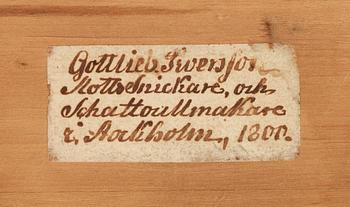 Gottlieb Iwersson
Slotts Snickare, och
Schattoullmakare
i, Stockholm, 1800.